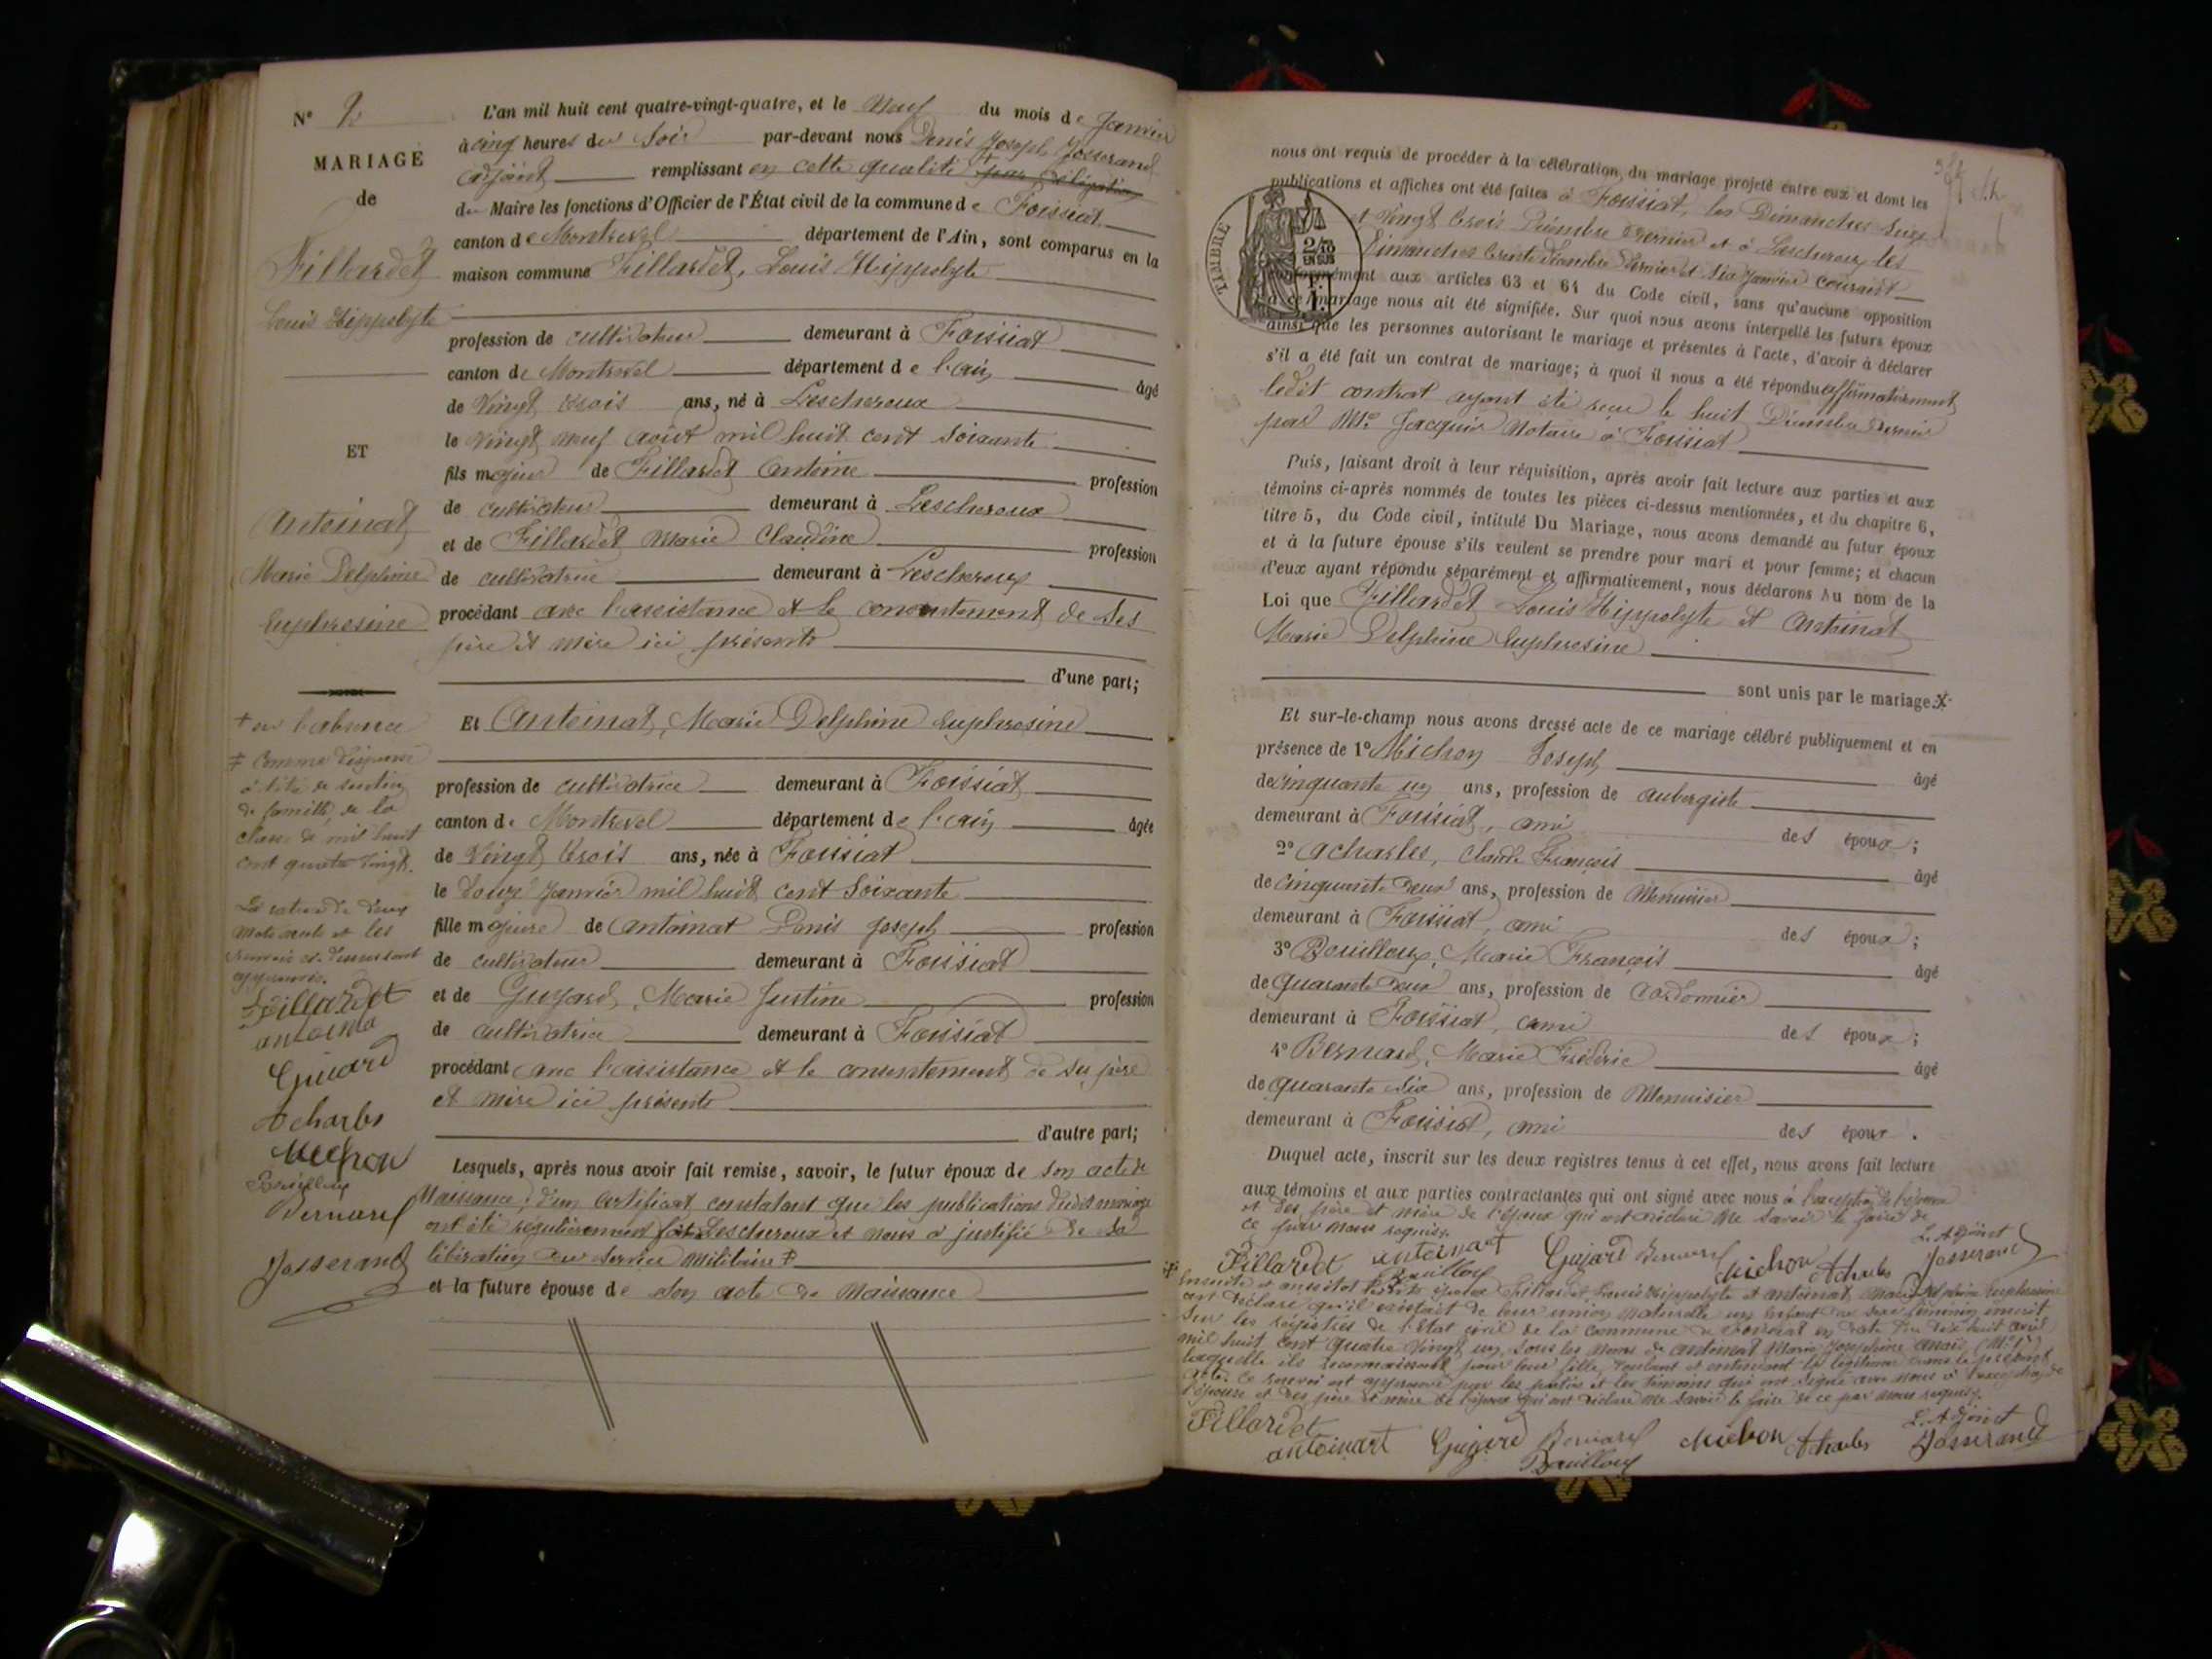 N° 2
MARIAGE
de
Fillardet
Louis Hippolyte
ET
Antoinat
Marie Delphine
Euphrosine
+ en l'absence
‡ comme dispensé
à titre de soutien
de famille, de la
classe de mil huit
cent quatre vingt.
La rature de deux
mots nuls et les
renvois ci-dessus sont
approuvés.
Fillardet
Guiard
Acharles
Michon
Bouilloux
Bernard
Josserand
L'an mil huit cent quatre-vingt-quatre, et le Neuf du mois de Janvier
à cinq heures du Soir par-devant nous Denis Joseph Josserand
adjoint remplissant en cette qualité + par délégation
du Maire les fonctions d'Officier de l'État civil de la commune de Foissiat
canton de Montrevel département de l'Ain, sont comparus en la
maison commune Fillardet, Louis Hippolyte
profession de cultivateur demeurant à Foissiat
canton de Montrevel département de l'ain âgé
de Vingt trois ans, né à Lescheroux
le Vingt neuf août mil huit cent soixante
fils majeur de Fillardet Antoine profession
de cultivateur demeurant à Lescheroux
et de Fillardet Marie Claudine profession
de cultivatrice demeurant à Lescheroux
procédant avec l'assistance et le consentement de ses
père et mère ici présents
d'une part;
Et Antoinat, Marie Delphine Euphrosine
profession de cultivatrice demeurant à Foissiat
canton de Montrevel département de l'ain âgée
de Vingt trois ans, née à Foissiat
le douze Janvier mil huit cent soixante
fille majeure de Antoinat Denis Joseph profession
de cultivateur demeurant à Foissiat
et de Guyard, Marie Justine profession
de cultivatrice demeurant à Foissiat
procédant avec l'assistance et le consentement de ses père
et mère ici présents
d'autre part;
Lesquels, après nous avoir fait remise, savoir, le futur époux de son acte de
Naissance; d'un certificat constatant que les publications dudit mariage
ont été régulièrement faites à Lescheroux et nous a justifié de sa
libération du service militaire ‡
et la future épouse de son acte de Naissance
nous ont requis de procéder à la célébration du mariage projeté entre eux et dont les
publications et affiches ont été faites à Foissiat, les Dimanches Seize
et Vingt trois Décembre dernier et à Lescheroux les
Dimanches trente Décembre dernier et six Janvier courant
TIMBRE
2/10
EN SUS
conformément aux articles 63 et 64 du Code civil, sans qu'aucune opposition
à ce mariage nous ait été signifiée. Sur quoi nous avons interpellé les futurs époux
ainsi que les personnes autorisant le mariage et présentes à l'acte, d'avoir à déclarer
s'il a été fait un contrat de mariage; à quoi il nous a été répondu affirmativement
ledit contrat ayant été reçu le huit Décembre dernier
par Me Jacquier Notaire à Foissiat
Puis, faisant droit à leur réquisition, après avoir fait lecture aux parties et aux
témoins ci-après nommés de toutes les pièces ci-dessus mentionnées, et du chapitre 6,
titre 5, du Code civil, intitulé Du Mariage, nous avons demandé au futur époux
et à la future épouse s'ils veulent se prendre pour mari et pour femme; et chacun
d'eux ayant répondu séparément et affirmativement, nous déclarons Au nom de la
Loi que Fillardet Louis Hippolyte et Antoinat
Marie Delphine Euphrosine
sont unis par le mariage.
Et sur-le-champ nous avons dressé acte de ce mariage célébré publiquement et en
présence de 1° Michon Joseph âgé
de cinquante un ans, profession de aubergiste
demeurant à Foissiat, ami des époux;
2° Acharles, Claude François âgé
de cinquante deux ans, profession de Menuisier
demeurant à Foissiat, ami des époux;
3° Bouilloux, Marie François âgé
de quarante deux ans, profession de Cordonnier
demeurant à Foissiat, ami des époux;
4° Bernard, Marie Frédéric âgé
de quarante six ans, profession de Menuisier
demeurant à Foissiat, ami des époux.
Duquel acte, inscrit sur les deux registres tenus à cet effet, nous avons fait lecture
aux témoins et aux parties contractantes qui ont signé avec nous à l'exception de l'épouse
et des père et mère de l'époux qui ont déclaré ne savoir le faire de
ce par nous requis.
L'Adjoint
Fillardet antoinat Guyard Bernard Michon Acharles Josserand
Bouilloux
Ensuite et aussitôt lesdits époux Fillardet Louis Hippolyte et Antoinat Marie Delphine Euphrosine
ont déclaré qu'il existait de leur union naturelle un enfant du sexe féminin inscrit
sur les registres de l'Etat civil de la commune de Foissiat en date du dix huit avril
mil huit cent quatre vingt un, sous les noms de Antoinat Marie Joséphine Anaïs
laquelle ils reconnaissent pour leur fille, voulant et entendant la légitimer dans le présent
acte. Ce renvoi est approuvé par les parties et les témoins qui ont signé avec nous à l'exception de
l'épouse et des père et mère de l'époux qui ont déclaré ne savoir le faire de ce par nous requis.
L'Adjoint
Fillardet antoinart Guyard Bernard Michon Acharles Josserand
Bouilloux